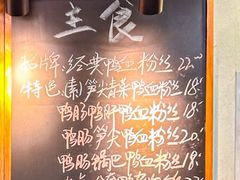 主食
招牌:经典鸭血粉丝22.-
特色(素)笋尖青菜鸭血粉丝18.-
鸭肠鸭肝鸭血粉丝18.-
鸭肠笋尖鸭血粉丝20.-
鸭肠锅巴鸭血粉丝18.-